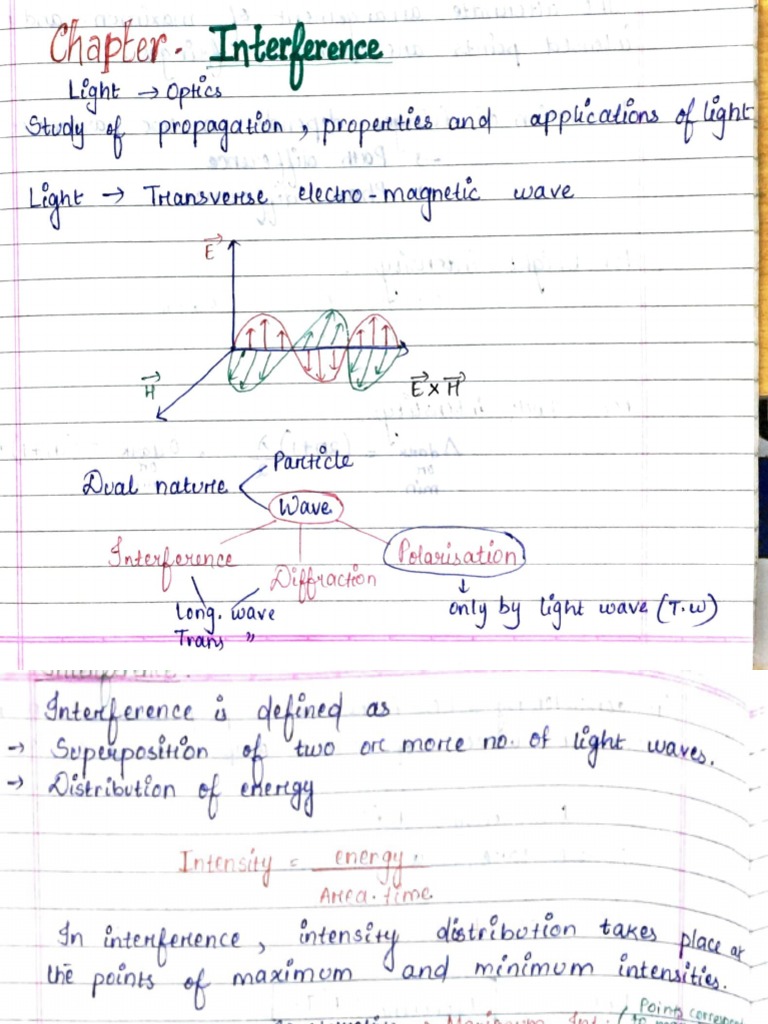 Chapter. Interference
Light → Optics
Study of propagation, properties and applications of light
Light → Transverse electro-magnetic wave
E
H
E × H
Dual nature
Particle
Wave
Interference
Diffraction
Polarisation
Long. wave
Trans "
only by light wave (T.W)
Interference is defined as
→ Superposition of two or more no. of light waves.
→ Distribution of energy
Intensity = energy
Area.time
In interference, intensity distribution takes place at
the points of maximum and minimum intensities.